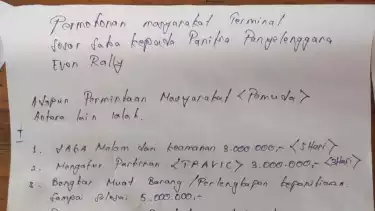 Permohonan masyarakat Terminal
Sosor Saba kepada Panitia Penyelenggara
Even Rally
Adapun Permintaan Masyarakat <Pemuda>
Antara lain ialah.
I
1. JAGA Malam dan keamanan 8.000.000,- <5 Hari>
2. Mengatur Parkiran <TRAVIC> 3.000.000,- <3 Hari>
3 Bongkar Muat Barang / Perlengkapan kepanitiaan
Sampai selesai 5.000.000,-